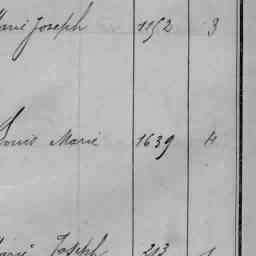 Marie Joseph 1152 3
Louis Marie 1639 4
Marie Joseph 313